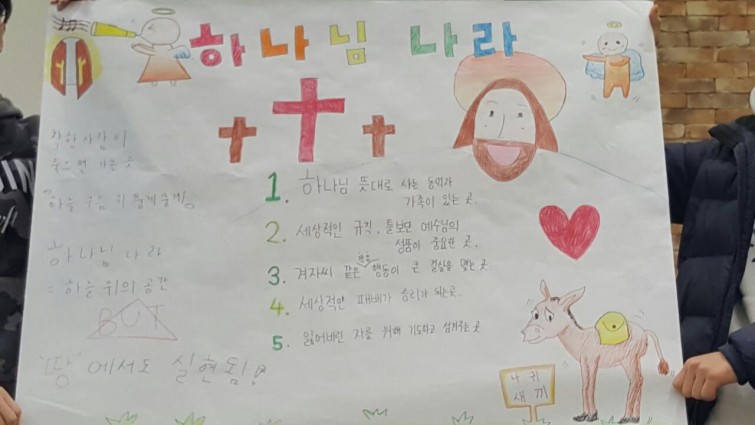 하나님 나라
착한 사람이
죽으면 가는 곳
하늘 구름 위 둥게둥게
하나님 나라
= 하늘 위의 공간
BUT
"땅"에서도 실현됨!
1. 하나님 뜻대로 사는 동역자
가족이 있는 곳.
2. 세상적인 규칙, 틀보단 예수님의
성품이 중요한 곳.
3. 겨자씨 같은 행동이 큰 결실을 맺는 곳
4. 세상적인 패배가 승리가 되는 곳.
5. 잃어버린 자를 위해 기도하고 섬겨주는 곳
나귀
새끼